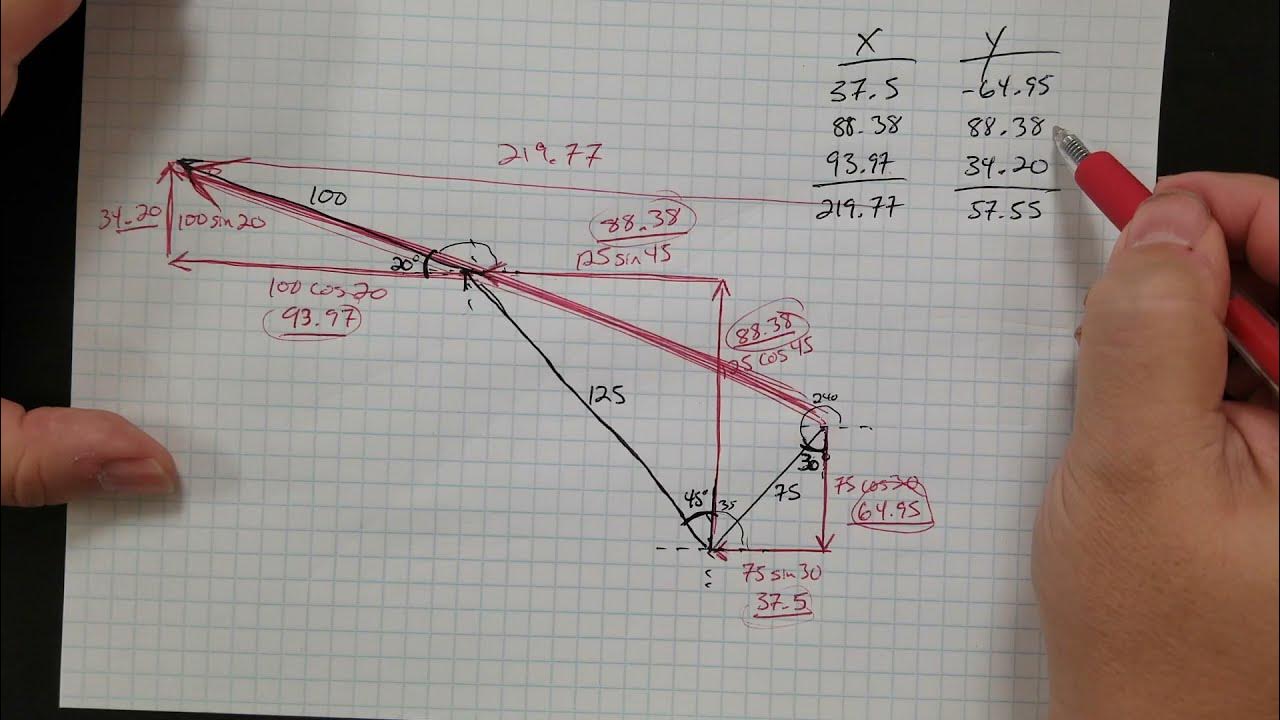 X Y
37.5 -64.95
88.38 88.38
93.97 34.20
219.77 57.55
219.77
100
34.20
100 sin 20
20°
88.38
125 sin 45
100 cos 20
93.97
88.38
125 cos 45
125
240
30
75
75 cos 30
64.95
45°
75 sin 30
37.5